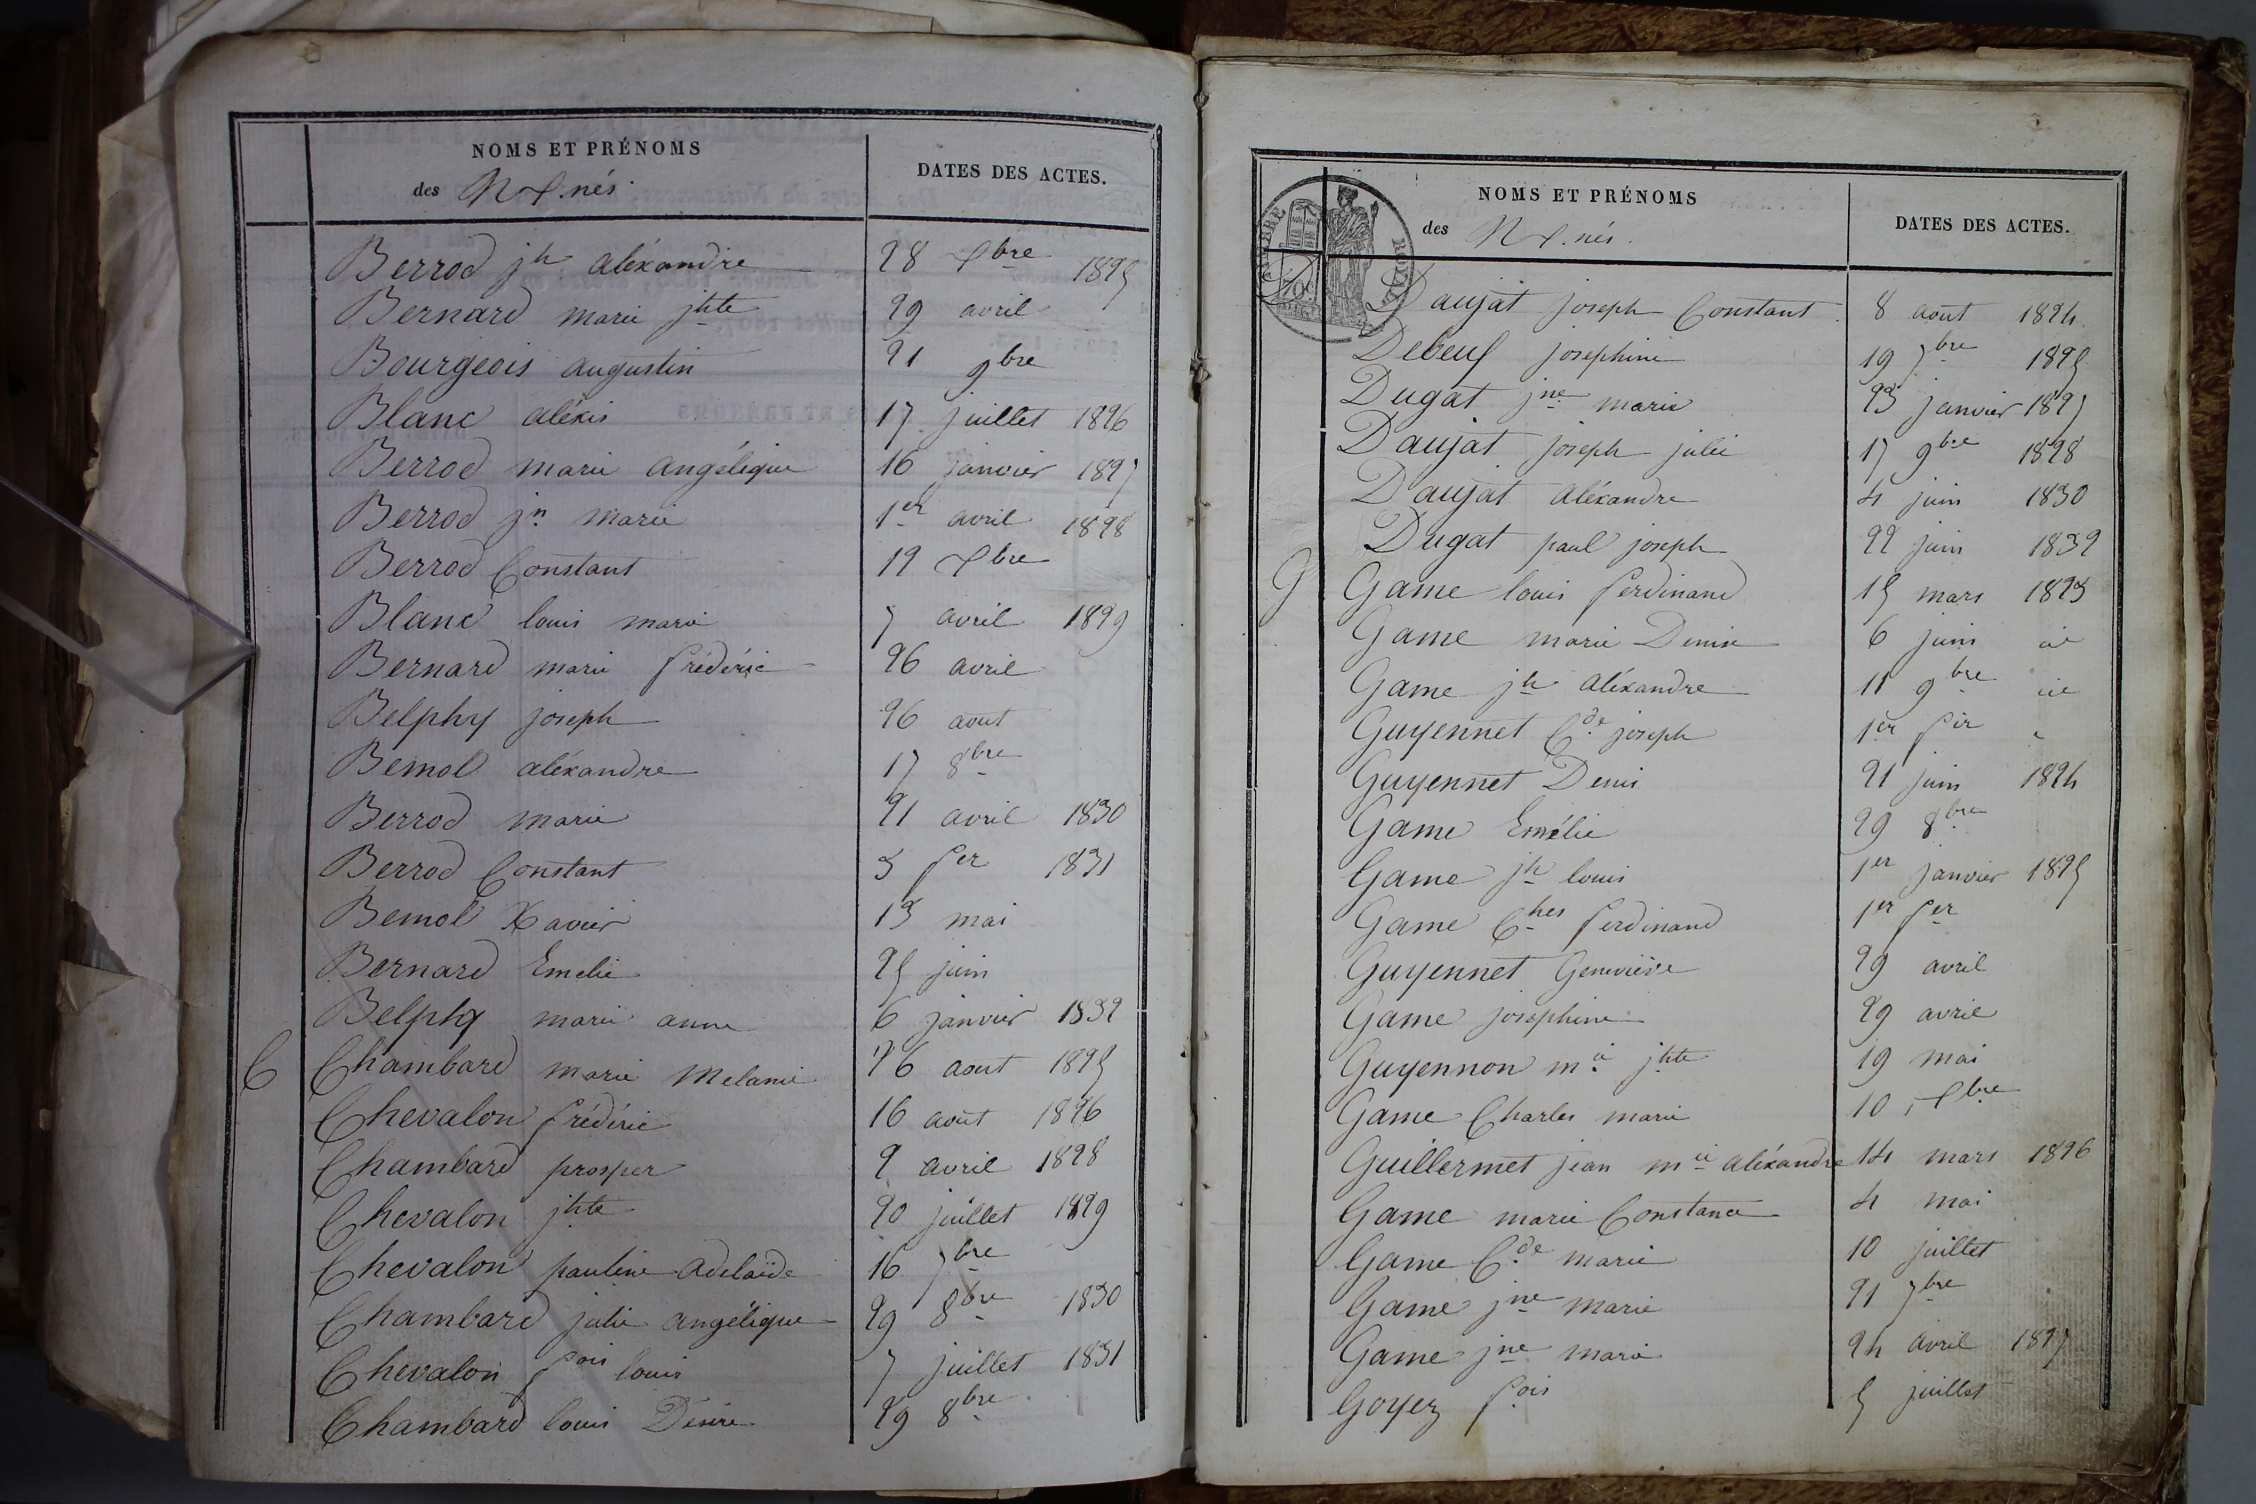 NOMS ET PRÉNOMS
des N.x.nés.
DATES DES ACTES.
Berrod jh aléxandre 28 xbre 1825
Bernard marie jhte 29 avril
Bourgeois augustin 21 9bre
Blanc aléxis 17 juillet 1826
Berrod marie angélique 16 janvier 1827
Berrod jn marie 1er avril 1828
Berrod Constant 12 xbre
Blanc louis marie 7 avril 1829
Bernard marie frédéric 26 avril
Belphy joseph 26 aout
Bemol aléxandre 17 8bre
Berrod marie 21 avril 1830
Berrod Constant 3 fer 1831
Bemol Xavier 13 mai
Bernard Emelie 25 juin
Belphy marie anne 6 janvier 1832
C Chambard marie Melanie 26 aout 1825
Chevalon frédéric 16 août 1826
Chambard prosper 2 avril 1828
Chevalon jhte 20 juillet 1829
Chevalon pauline Adelaïde 16 7bre
Chambard julie angélique 29 8bre 1830
Chevalon fois louis 7 juillet 1831
Chambard louis Désiré 29 8bre
TIMBRE ROYAL
NOMS ET PRÉNOMS
des N.x.nés.
DATES DES ACTES.
Daujat joseph Constant 8 aout 1824
Debeuf josephine 19 7bre 1825
Dugat jne marie 23 janvier 1827
Daujat joseph julie 17 9bre 1828
Daujat aléxandre 4 juin 1830
Dugat paul joseph 22 juin 1832
G Game louis ferdinand 15 mars 1823
Game marie Denise 6 juin id
Game jh aléxandre 11 9bre id
Guyennet Cde joseph 1er fer
Guyennet Denis 21 juin 1824
Game Emélie 29 8bre
Game jh louis 1er janvier 1825
Game Ches ferdinand 1er fer
Guyennet Geneviève 29 avril
Game josephine 29 avril
Guyennon ma jhte 19 mai
Game Charles marie 10 xbre
Guillermet jean mie aléxandre 14 mars 1826
Game marie Constance 4 mai
Game Cde marie 10 juillet
Game jne marie 21 7bre
Game jne marie 24 avril 1827
Goyez fois 5 juillet